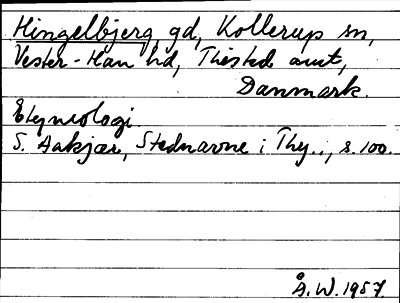 Hingelbjerg, gd, Kollerup sn,
Vester-Han hd, Thisted amt,
Danmark.
Etymologi
S. Aakjær, Stednavne i Thy.., s. 100.
Å. W. 1957.